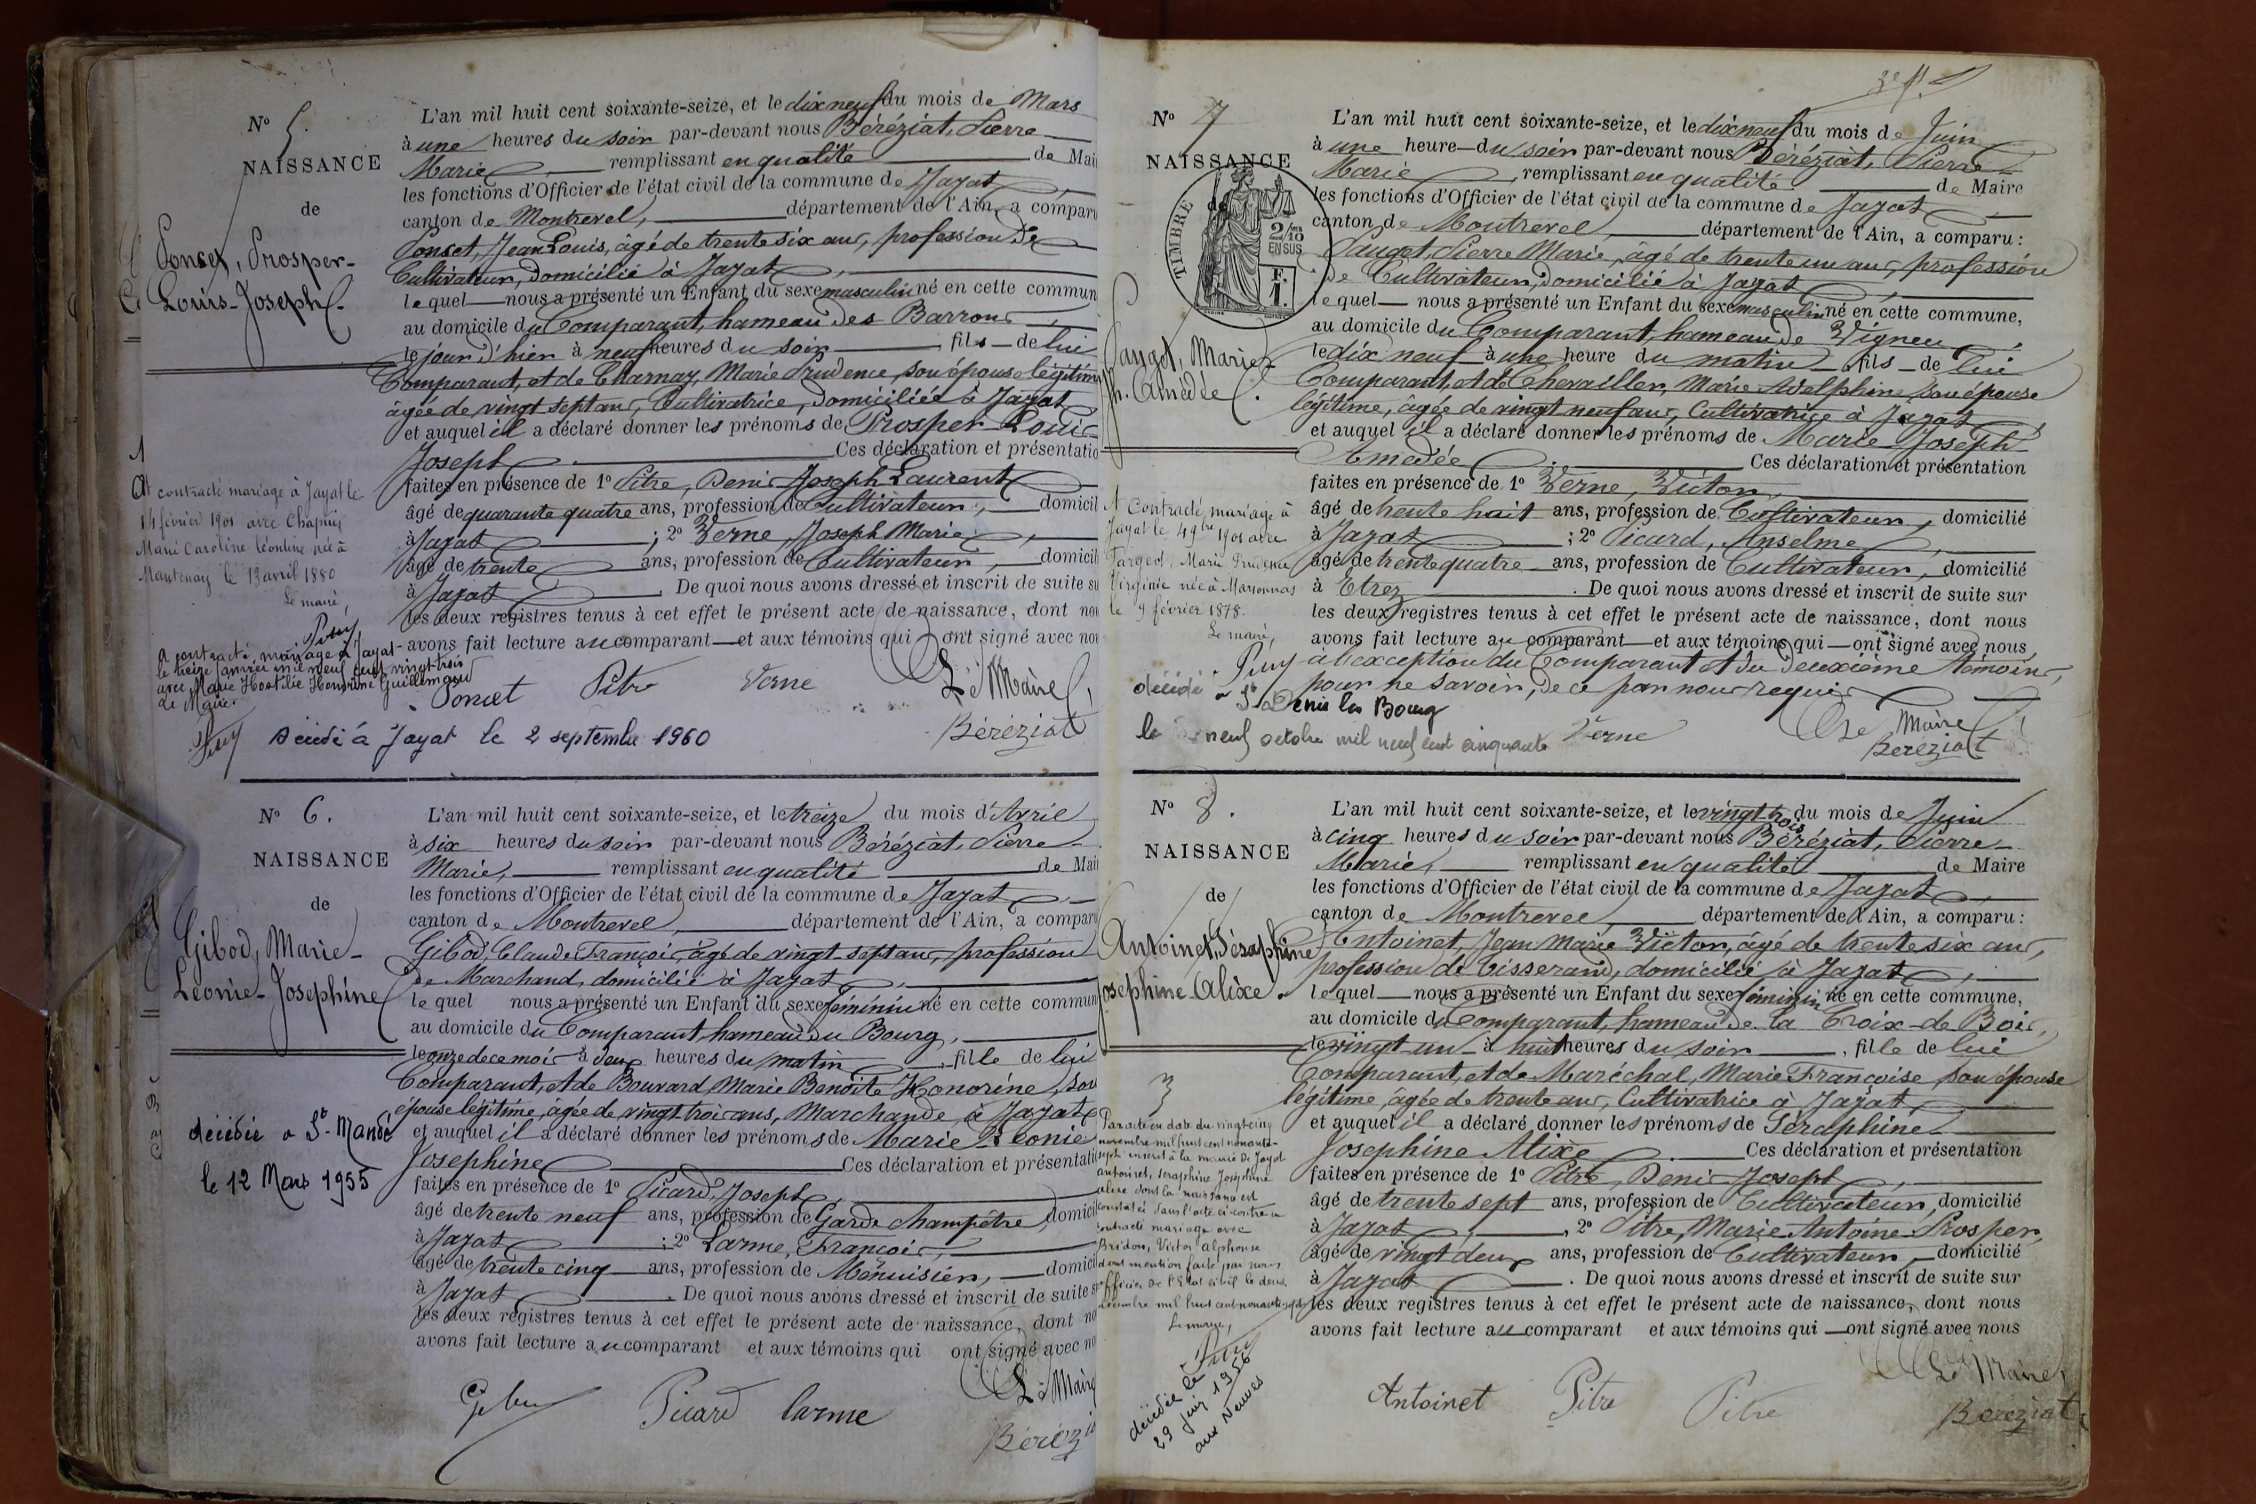 N° 5.
NAISSANCE
de
Poncet, Prosper-
Louis-Joseph.
L'an mil huit cent soixante-seize, et le dix neuf du mois de Mars
à une heures du soir par-devant nous Béréziat, Pierre
Marie remplissant en qualité de Mai
les fonctions d'Officier de l'état civil de la commune de Jayat
canton de Montrevel, département de l'Ain, a comparu
Poncet, Jean Louis, âgé de trente six ans, profession de
Cultivateur, domicilié à Jayat,
lequel nous a présenté un Enfant du sexe masculin né en cette commun
au domicile du Comparant, hameau des Barrons
le jour d'hier à neuf heures du soir fils de lui
Comparant, et de Charnay, Marie Prudence, son épouse légitime
âgée de vingt sept ans, Cultivatrice, domiciliée à Jayat
et auquel il a déclaré donner les prénoms de Prosper Louis
Joseph. Ces déclaration et présentatio
faites en présence de 1° Pitre, Denis Joseph Laurent
âgé de quarante quatre ans, profession de Cultivateur, domicil
à Jayat ; 2° Verne, Joseph Marie,
âgé de trente ans, profession de Cultivateur, domicil
à Jayat. De quoi nous avons dressé et inscrit de suite su
les deux registres tenus à cet effet le présent acte de naissance, dont nou
avons fait lecture au comparant et aux témoins qui ont signé avec nou
Poncet Pitre Verne Le Maire
Béréziat
A contracté mariage à Jayat le
14 février 1901 avec Chapuis
Marie Caroline Léontine née à
Mantenay le 13 avril 1880
Le maire,
Puy
A contracté mariage à Jayat
le treize janvier mil neuf cent vingt-trois
avec Marie Hostilie Honorine Guillemaud
Le Maire
Puy
Décédé à Jayat le 2 septembre 1960
N° 6.
NAISSANCE
de
Gibod, Marie-
Léonie-Josephine
L'an mil huit cent soixante-seize, et le treize du mois d'Avril
à six heures du soir par-devant nous Béréziat, Pierre
Marie, remplissant en qualité de Mai
les fonctions d'Officier de l'état civil de la commune de Jayat
canton de Montrevel, département de l'Ain, a comparu
Gibod, Claude François, âgé de vingt-sept ans, profession
de Marchand, domicilié à Jayat,
lequel nous a présenté un Enfant du sexe féminin né en cette commun
au domicile du Comparant, hameau du Bourg,
le onze de ce mois à deux heures du matin, fille de lui
Comparant, et de Bouvard, Marie Benoîte Honorine, son
épouse légitime, âgée de vingt trois ans, Marchande, à Jayat
et auquel il a déclaré donner les prénoms de Marie Léonie
Josephine Ces déclaration et présentati
faites en présence de 1° Picard, Joseph,
âgé de trente neuf ans, profession de Garde champêtre, domicil
à Jayat ; 2° Larme, François,
âgé de trente cinq ans, profession de Menuisier, domici
à Jayat. De quoi nous avons dressé et inscrit de suite s
les deux registres tenus à cet effet le présent acte de naissance, dont no
avons fait lecture au comparant et aux témoins qui ont signé avec no
Picard Larme Le Maire
Béréziat
décédée à St-Mandé
le 12 Mars 1955
N° 7
NAISSANCE
de
TIMBRE
2/10 EN SUS
F. 1.
Marie-
Amédée.
L'an mil huit cent soixante-seize, et le dix neuf du mois de Juin
à une heure du soir par-devant nous Béréziat, Pierre
Marie, remplissant en qualité de Maire
les fonctions d'Officier de l'état civil de la commune de Jayat
canton de Montrevel département de l'Ain, a comparu :
Pierre Marie, âgé de trente un ans, profession
de Cultivateur, domicilié à Jayat,
lequel nous a présenté un Enfant du sexe masculin né en cette commune,
au domicile du Comparant, hameau de Vigneu,
le dix neuf à une heure du matin, fils de lui
Comparant, et de Chevailler, Marie Adelphine son épouse
légitime, âgée de vingt neuf ans, Cultivatrice à Jayat,
et auquel il a déclaré donner les prénoms de Marie Joseph
Amédée. Ces déclaration et présentation
faites en présence de 1° Verne, Victor,
âgé de trente huit ans, profession de Cultivateur, domicilié
à Jayat ; 2° Picard, Anselme,
âgé de trente quatre ans, profession de Cultivateur, domicilié
à Etrez. De quoi nous avons dressé et inscrit de suite sur
les deux registres tenus à cet effet le présent acte de naissance, dont nous
avons fait lecture au comparant et aux témoins qui ont signé avec nous
à l'exception du Comparant et du deuxième témoin,
pour ne savoir, de ce par nous requis
Verne Le Maire
Béréziat
A contracté mariage à
Jayat le 4 9bre 1901 avec
Fargeot, Marie Prudence
Virginie née à Marsonnas
le 9 février 1878.
Le maire,
Puy
décédé à St Denis les Bourg
le neuf octobre mil neuf cent cinquante
N° 8.
NAISSANCE
de
Antoinet, Séraphine
Josephine-Alixe.
L'an mil huit cent soixante-seize, et le vingt trois du mois de Juin
à cinq heures du soir par-devant nous Béréziat, Pierre
Marie, remplissant en qualité de Maire
les fonctions d'Officier de l'état civil de la commune de Jayat
canton de Montrevel, département de l'Ain, a comparu :
Antoinet, Jean Marie Victor, âgé de trente six ans,
profession de Tisserand, domicilié à Jayat,
lequel nous a présenté un Enfant du sexe féminin né en cette commune,
au domicile du Comparant, hameau de la Croix-de-Bois,
le vingt-un à huit heures du soir, fille de lui
Comparant, et de Maréchal, Marie Françoise son épouse
légitime, âgée de trente ans, Cultivatrice à Jayat,
et auquel il a déclaré donner les prénoms de Séraphine
Josephine Alixe. Ces déclaration et présentation
faites en présence de 1° Pitre, Denis Joseph,
âgé de trente sept ans, profession de Cultivateur, domicilié
à Jayat, 2° Pitre, Marie Antoine Prosper,
âgé de vingt deux ans, profession de Cultivateur, domicilié
à Jayat. De quoi nous avons dressé et inscrit de suite sur
les deux registres tenus à cet effet le présent acte de naissance, dont nous
avons fait lecture au comparant et aux témoins qui ont signé avec nous
Antoinet Pitre Pitre Le Maire,
Béréziat
Par acte en date du vingt-cinq
novembre mil huit cent nonante-
sept inscrit à la mairie de Jayat
antoinet, séraphine Joséphine
alixe dont la naissance est
constatée dans l'acte ci-contre a
contracté mariage avec
Bridon, Victor alphonse
dont mention faite par nous
officier de l'Etat civil le deux
décembre mil huit cent nonante-sept
Le maire,
Puy
décédée le
29 juin 1956
aux Neuves